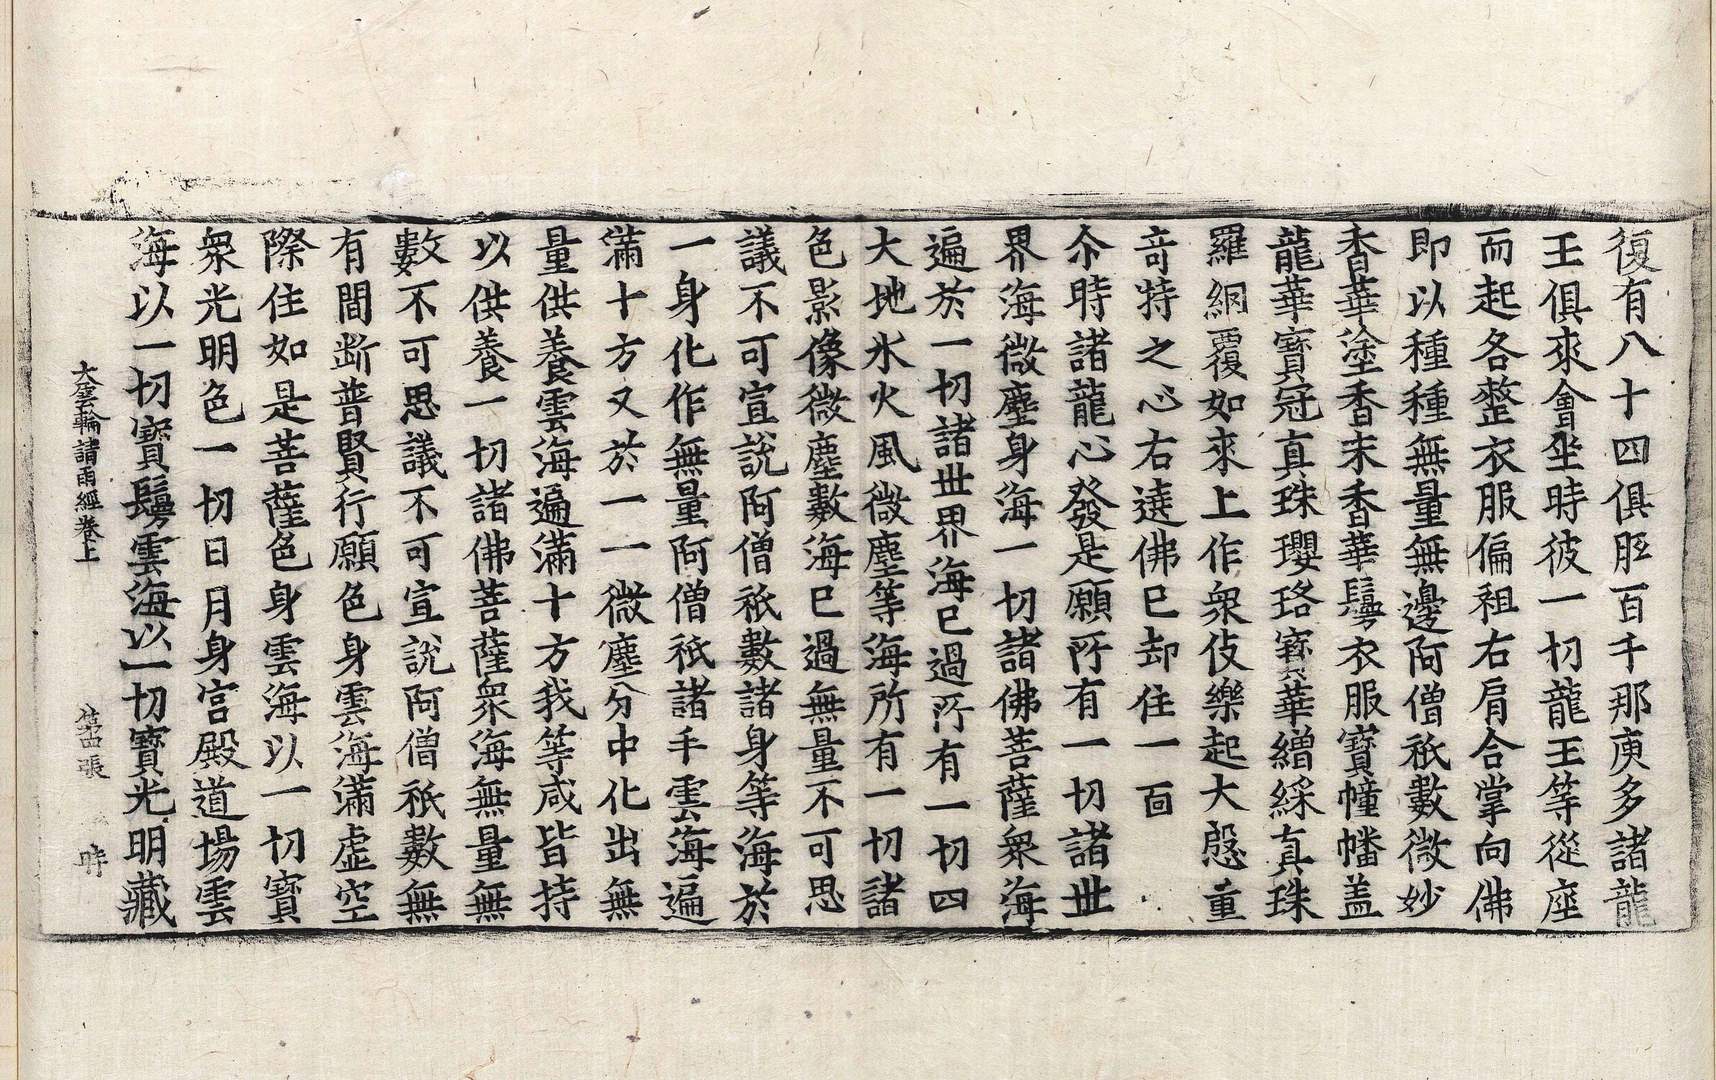 復有八十四俱胝百千那庾多諸龍
王俱來會坐時彼一切龍王等從座
而起各整衣服偏袒右肩合掌向佛
即以種種無量無邊阿僧祇數微妙
香華塗香末香華鬘衣服寶幢幡盖
龍華寶冠真珠瓔珞寶華繒綵真珠
羅網覆如來上作衆伎樂起大慇重
奇特之心右遶佛已却住一面
尒時諸龍心發是願所有一切諸世
界海微塵身海一切諸佛菩薩衆海
遍於一切諸世界海已過所有一切四
大地水火風微塵等海所有一切諸
色影像微塵數海已過無量不可思
議不可宣說阿僧祇數諸身等海於
一身化作無量阿僧祇諸手雲海遍
滿十方又於一一微塵分中化出無
量供養雲海遍滿十方我等咸皆持
以供養一切諸佛菩薩衆海無量無
數不可思議不可宣說阿僧祇數無
有間断普賢行願色身雲海滿虛空
際住如是菩薩色身雲海以一切寶
衆光明色一切日月身宫殿道場雲
海以一切寶鬘雲海以一切寶光明藏
大雲輪請雨經卷上 張 時